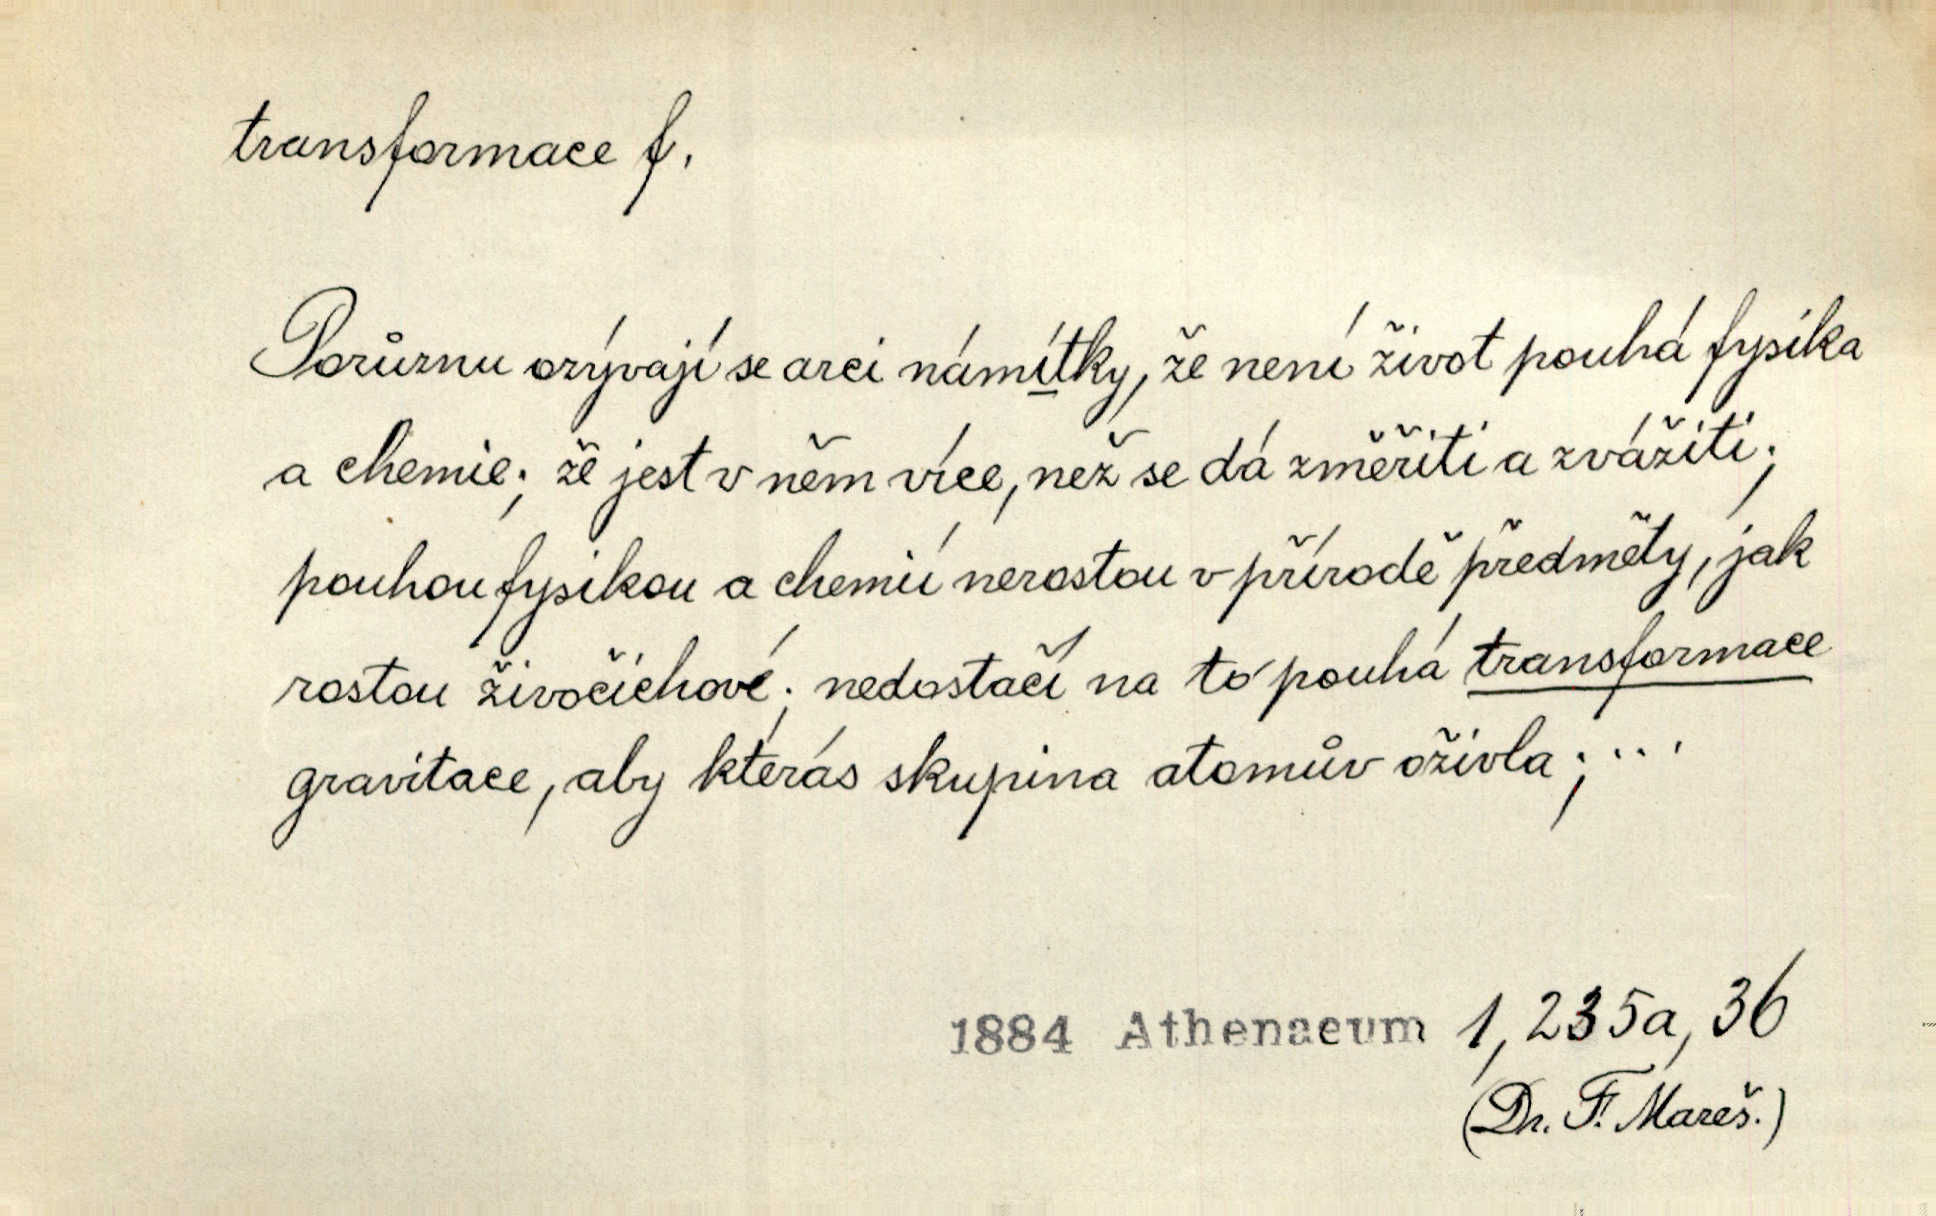 transformace f.
Porůznu ozývají se arci námítky, že není život pouhá fysika
a chemie; že jest v něm více, než se dá změřiti a zvážiti;
pouhou fysikou a chemií nerostou v přírodě předměty, jak
rostou živočichové; nedostačí na to pouhá transformace
gravitace, aby kterás skupina atomův oživla; ...
1884 Athenaeum 1, 235a, 36
(Dr. F. Mareš.)